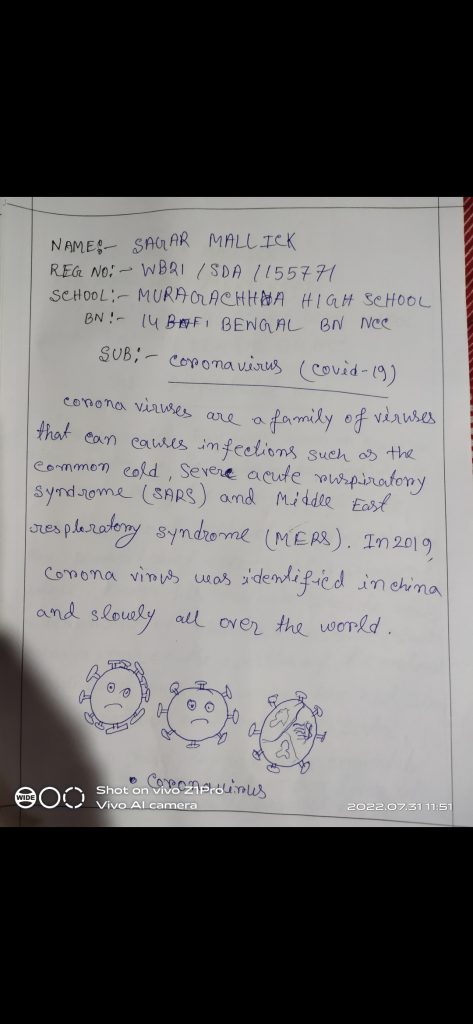 NAME:- SAGAR MALLICK
REG NO:- WB21/SDA/155771
SCHOOL:- MURAGACHHA HIGH SCHOOL
BN:- 14 BENGAL BN NCC
SUB:- coronavirus (covid-19)
corona viruses are a family of viruses
that can causes infections such as the
common cold, Severe acute ruspiratory
syndrome (SARS) and Middle East
respiratory syndrome (MERS). In 2019,
corona virus was identified in china
and slowly all over the world.
• coronavirus
WIDE
Shot on vivo Z1Pro
Vivo AI camera
2022.07.31 11:51